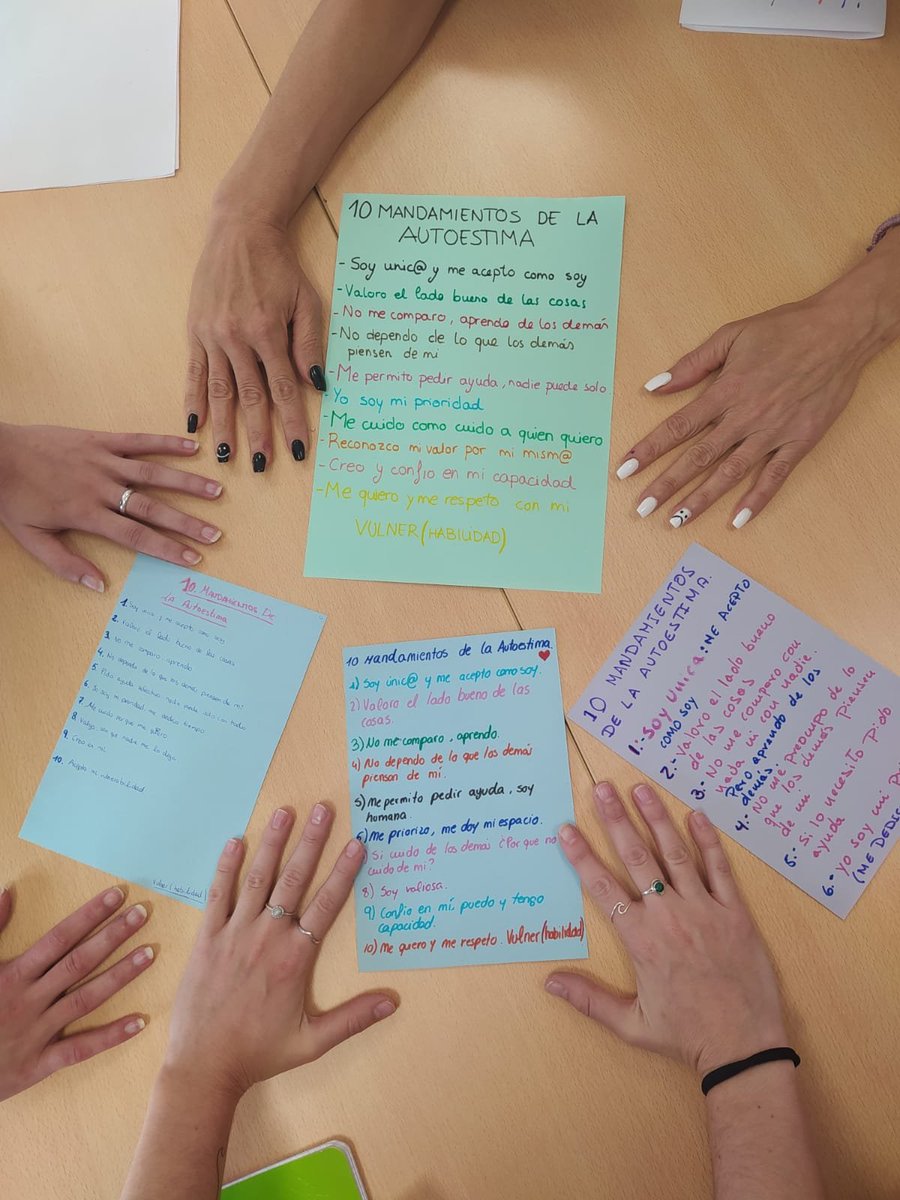 10 MANDAMIENTOS DE LA
AUTOESTIMA
- Soy unic@ y me acepto como soy
- Valoro el lado bueno de las cosas
- No me comparo, aprendo de los demás
- No dependo de lo que los demás
piensen de mi
- Me permito pedir ayuda, nadie puede solo
- Yo soy mi prioridad
- Me cuido como cuido a quien quiero
- Reconozco mi valor por mi mism@
- Creo y confio en mi capacidad
- Me quiero y me respeto con mi
VULNER(HABILIDAD)
10 MANDAMIENTOS DE
LA Autoestima
1. Soy única y me acepto como soy
2. Valoro el lado bueno de las cosas
3. No me comparo, aprendo
4. No dependo de lo que los demás piensen de mi
5. Pido ayuda
6. Yo soy mi prioridad me dedico tiempo
7. Me cuido
8. Valgo sin que nadie me lo diga
9. Creo en mi
10. Acepto mi vulnerabilidad
Vulner(habilidad)
10 Mandamientos de la Autoestima.
1) Soy únic@ y me acepto como soy.
2) Valoro el lado bueno de las
cosas.
3) No me comparo, aprendo.
4) No dependo de lo que los demás
piensan de mi.
5) Me permito pedir ayuda, soy
humana.
6) Me priorizo, me doy mi espacio.
7) Si cuido de los demás ¿Por que no
cuido de mi?
8) Soy valiosa.
9) Confio en mí, puedo y tengo
capacidad.
10) Me quiero y me respeto. Vulner(habilidad)
10 MANDAMIENTOS
DE LA AUTOESTIMA.
1.- SOY ÚNICA: ME ACEPTO
COMO SOY
2.- Valoro el lado bueno
de las cosas
3.- No me comparo con
nada ni con nadie.
Pero aprendo de los
demás.
4.- No me preocupo de lo
que los demás piensen
de un
5.- Si lo necesito pido
ayuda
6.- Yo soy mi
(ME DEDIC